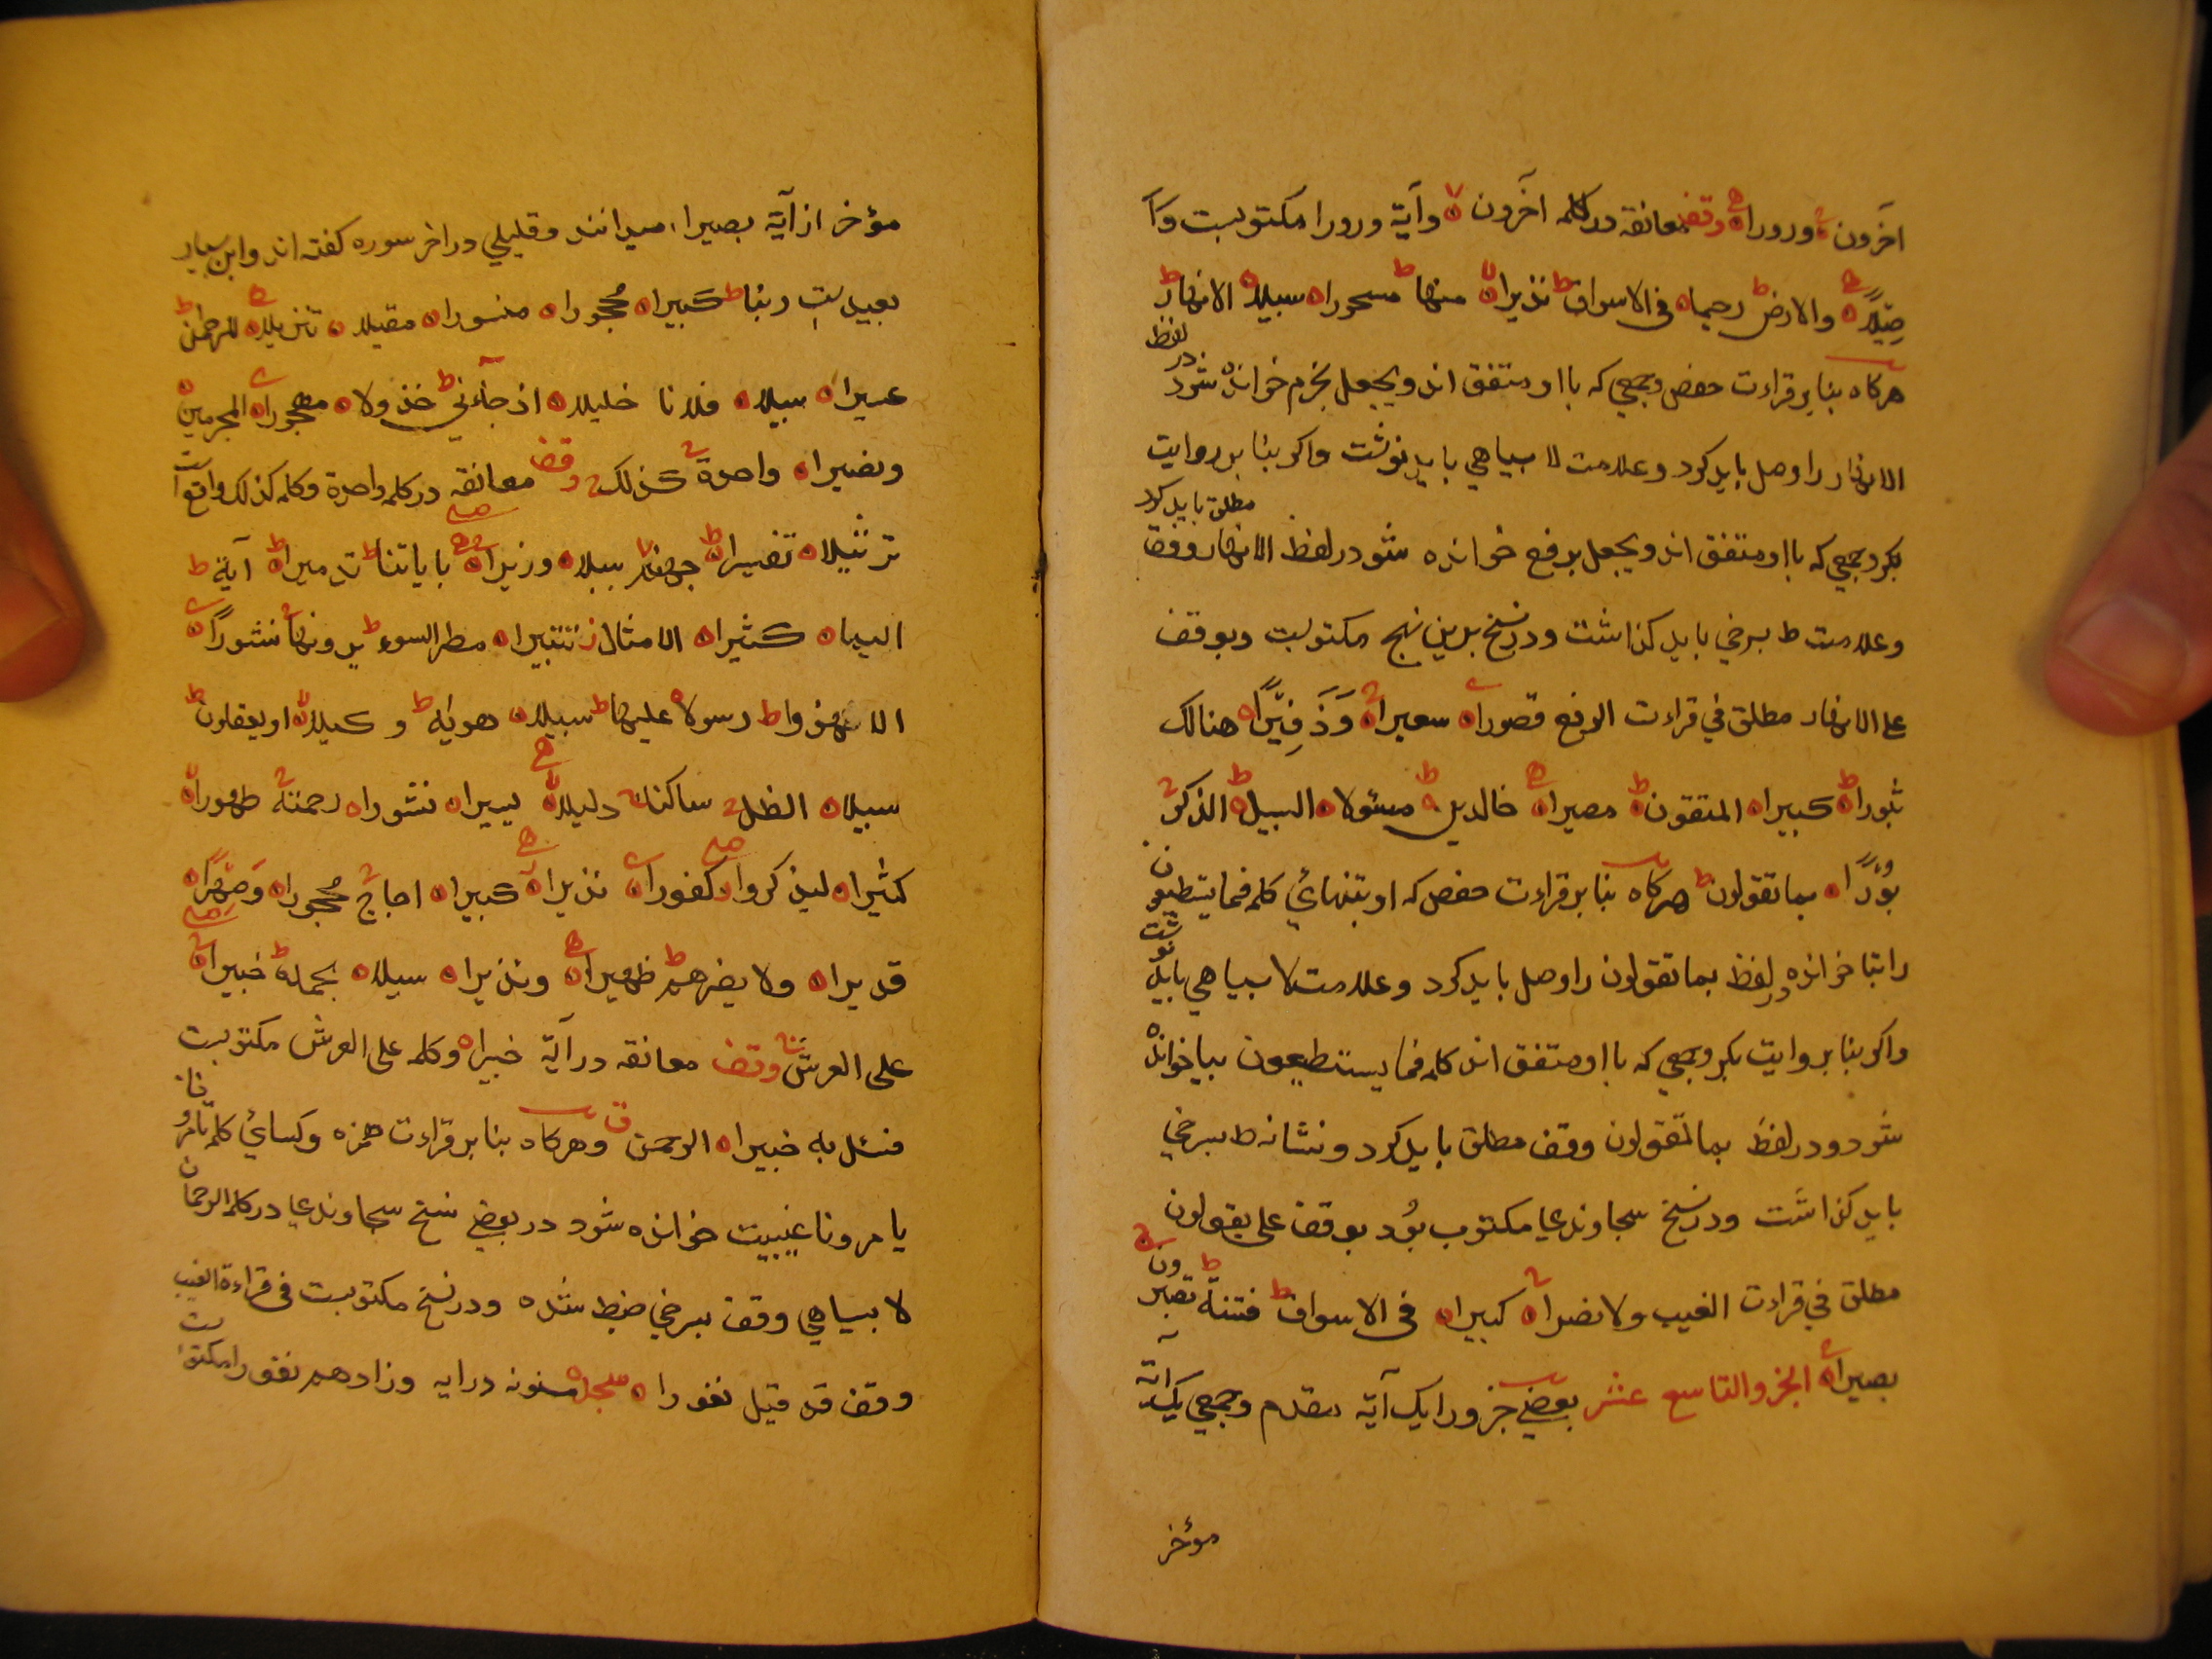 آخرون وزورا وقف معانقه در کلمه آخرون لا وآیة وزورا مکتوبست وآ
صیلا والارض ط رحیما فی الاسواق ط نذیرا لا منها ط مسحورا سبیلا الانهار ط
هرکاه بنابر قراءت حفص وجمعی که با او متفق اند ویجعل بجزم خوانده شود در لفظ
الانهار را وصل باید کرد وعلامت لا بسیاهی باید نوشت واکر بنابر روایت
بکر وجمعی که با او متفق اند ویجعل برفع خوانده شود در لفظ الانهار وقف مطلق باید کرد
وعلامت ط بسرخی باید کذاشت ودر نسخ بدین نهج مکتوبست ویوقف
علی الانهار مطلق فی قراءت الرفع قصورا سعیرا وزفیرا هنالک
ثبورا ط کبیرا المتقون ط مصیرا خالدین ط مسئولا السبیل ط الذکر ج
بورا بما تقولون ط هرکاه بنابر قراءت حفص که او بتنهائی کلمه فما یستطیعون
را بتا خوانده در لفظ بما تقولون را وصل باید کرد وعلامت لا بسیاهی باید نوشت
واکر بنابر روایت بکر وجمعی که با او متفق اند کلمه فما یستطیعون بیا خوانده
شود ودر لفظ بما تقولون وقف مطلق باید کرد ونشانه ط بسرخی
باید کذاشت ودر نسخ سجاوندی مکتوب بُود یوقف علی یقولون
مطلق فی قراءت الغیب ولا نصرا ج کبیرا فی الاسواق ط فتنة ط تصبرون ج
بصیرا الجزو التاسع عشر بعضی جزو را یک آیة مقدم وجمعی یک آیة
مؤخر
مؤخر از آیة بصیرا میدانند وقلیلی در اخر سوره کفته اند وابن
ربنا ط کبیرا محجورا منثورا مقیلا تنزیلا للرحمن ط
عسیرا سبیلا فلانا خلیلا اذ جاءنی ط خذولا مهجورا المجرمین ط
ونصیرا واحدة ج کذلک ج وقف معانقه در کلمه واحدة وکلمه کذلک واقع است
ترتیلا تفسیرا ط جهنم لا سبیلا وزیرا بایاتنا ط تدمیرا ط آیة ط
الیما کثیرا الامثال ز تتبیرا مطر السوء ط یرونها ج نشورا
الا هزوا ط رسولا علیها ط سبیلا هویه ط وکیلا لا او یعقلون ط
سبیلا الظل ج ساکنا ج دلیلا لا یسیرا نشورا رحمته ج طهورا لا
کثیرا لیذکروا کفورا نذیرا کبیرا اجاج ج محجورا وصهرا
قدیرا ولا یضرهم ط ظهیرا ونذیرا سبیلا بحمده ط خبیرا
علی العرش وقف معانقه در آیة خبیرا وکلمه علی العرش مکتوبست
فسئل به خبیرا الرحمن ق وهرکاه بنابر قراءت حمزه وکسائی کلمه تامرونا
یامرونا غیبیت خوانده شود در بعضی نسخ سجاوندی در کلمه الرحمان
لا بسیاهی وقف بسرخی ضبط شده ودر نسخ مکتوبست فی قراءة الغیب
وقف قد قیل نفورا سجده مسنونه در ایه وزادهم نفورا مکتوبست